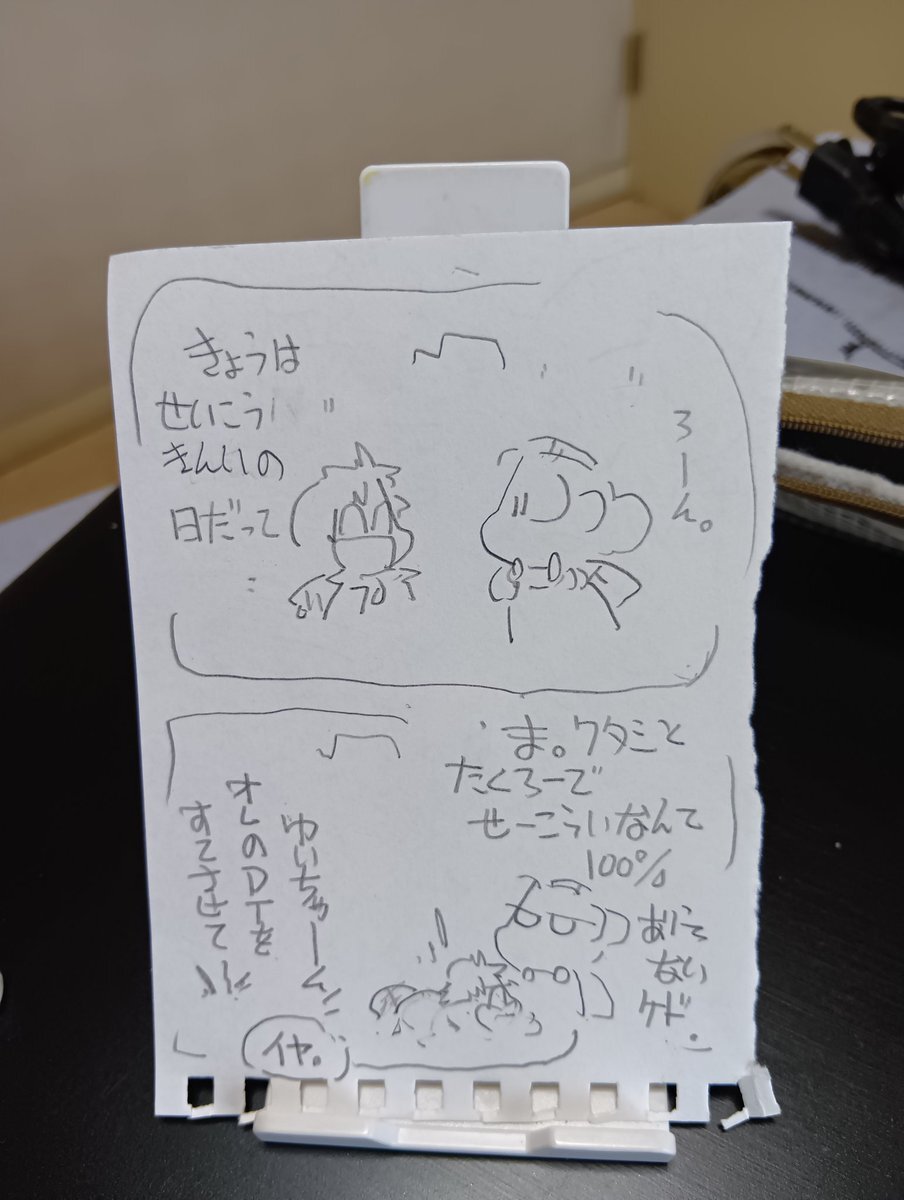 きょうは
せいこうい
きんしの
日だって
ろーん。
ま。ワタシと
たくろーで
せーこういなんて
100%
ありえ
ない
ケド。
ゆいちゅーん
オレのDTを
すてさせて
イヤ。